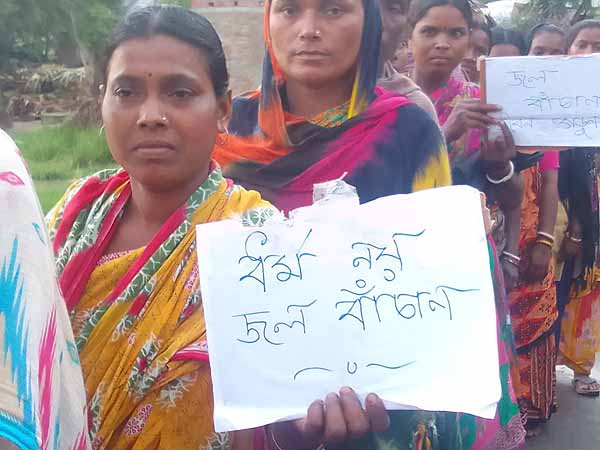 ধর্ম নয়
জল বাঁচান
জল
বাঁচান